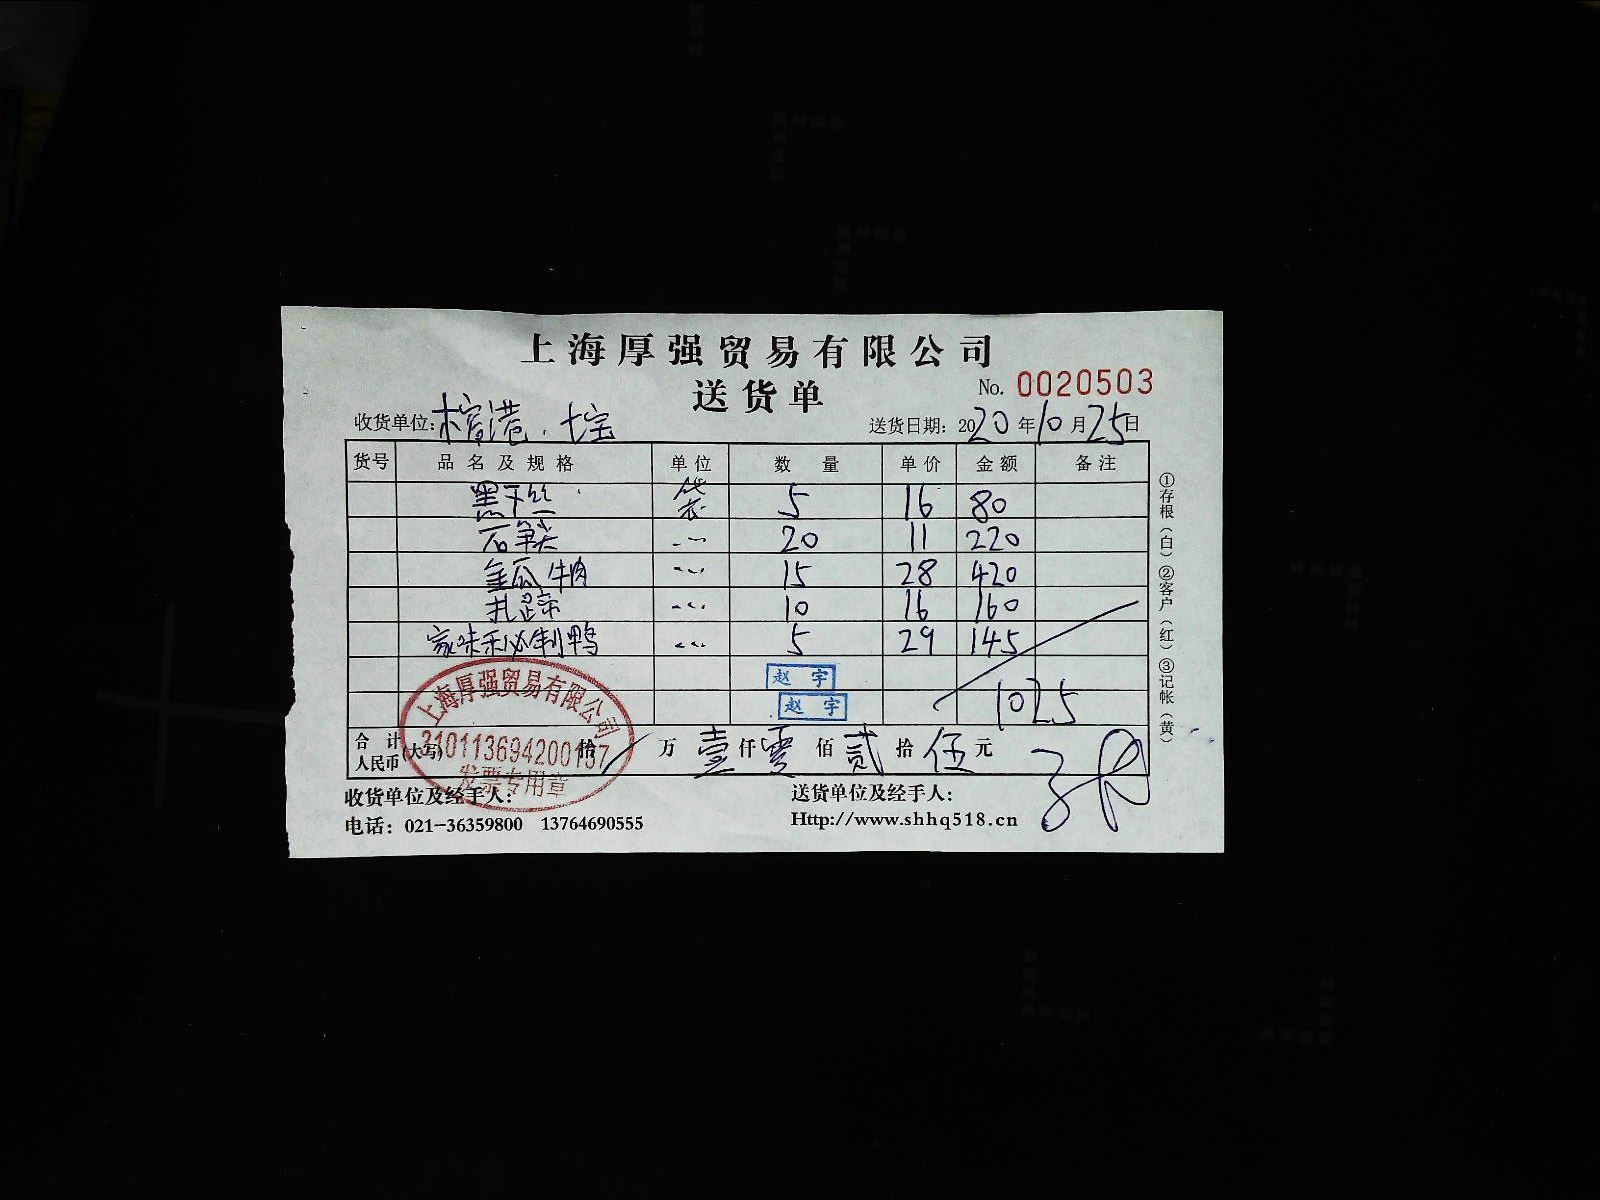 上海厚强贸易有限公司
送货单
No. 0020503
收货单位: 七宝
送货日期: 2020年10月25日
货号 品名及规格 单位 数量 单价 金额 备注
黑干丝 袋 5 16 80
石笋尖 〃 20 11 220
金瓜牛肉 〃 15 28 420
扎蹄 〃 10 16 160
家味秘制鸭 〃 5 29 145
赵宇
赵宇
1025
合计人民币(大写) 拾 万 壹仟零佰贰拾伍元
上海厚强贸易有限公司
310113694200137
发票专用章
收货单位及经手人:
送货单位及经手人:
电话: 021-36359800 13764690555
Http://www.shhq518.cn
①存根(白)②客户(红)③记帐(黄)